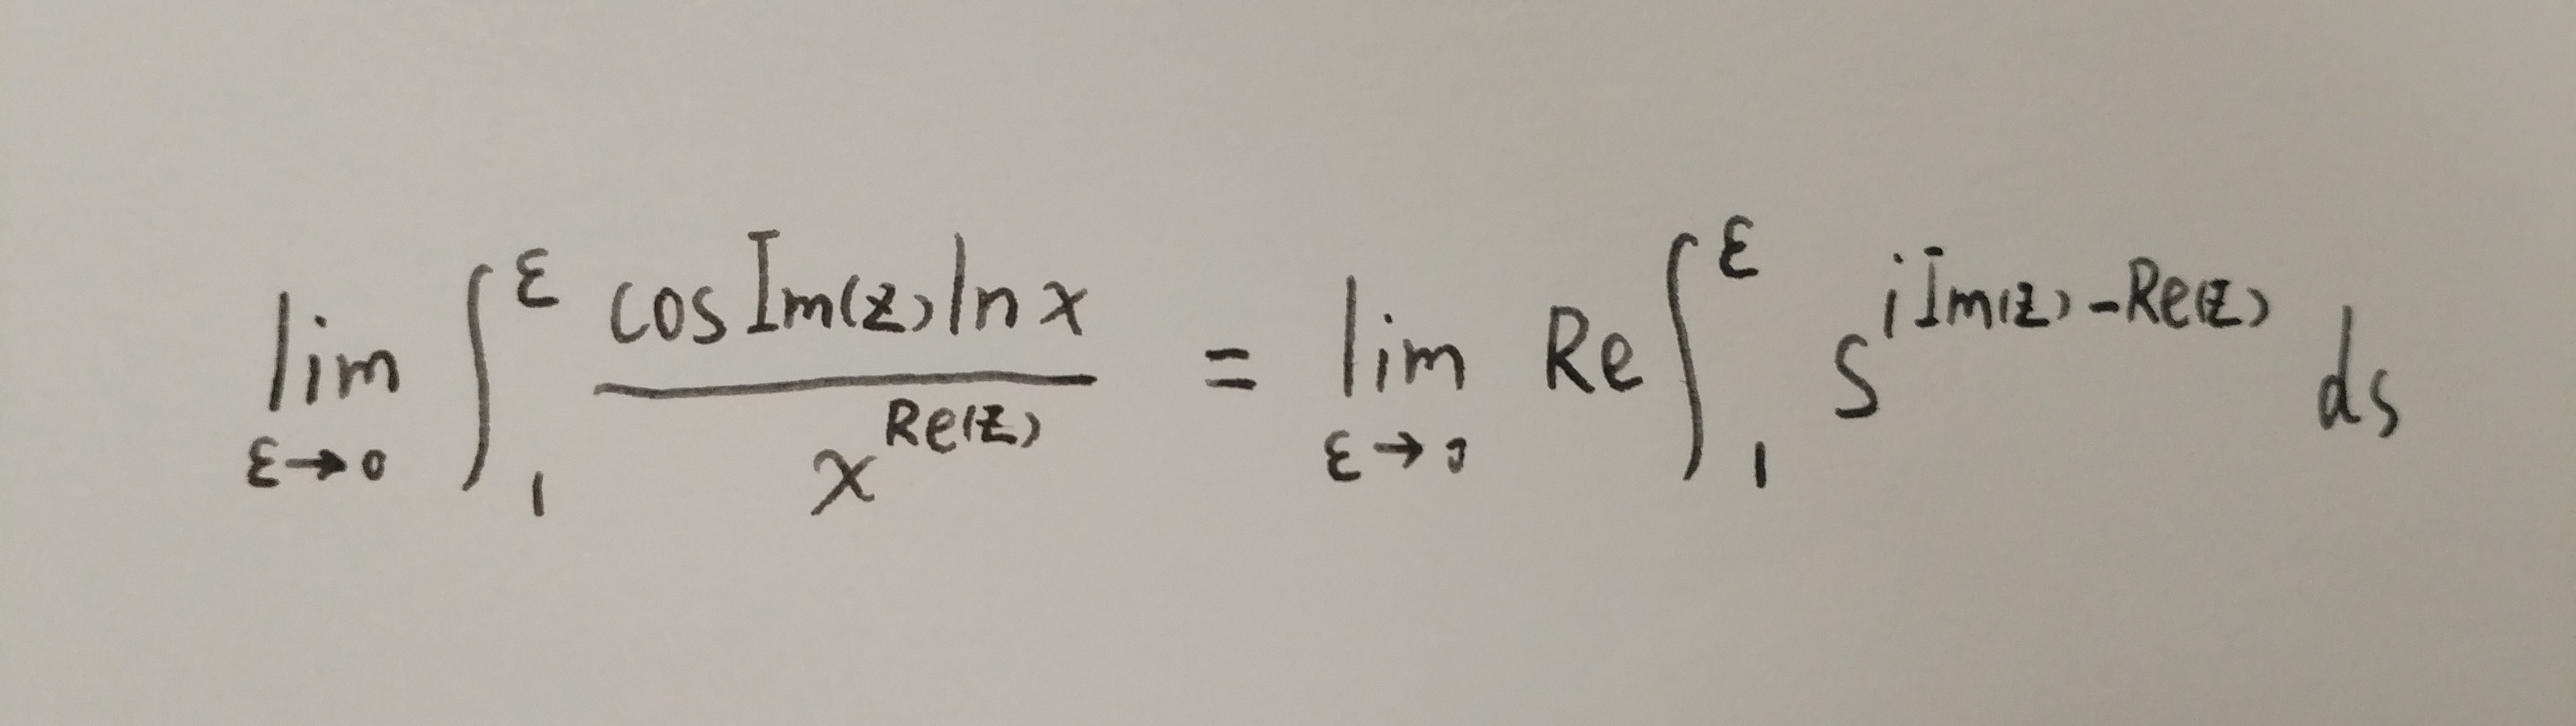 \lim_{\varepsilon \to 0} \int_{1}^{\varepsilon} \frac{\cos Im(z) \ln x}{x^{Re(z)}} = \lim_{\varepsilon \to 0} Re \int_{1}^{\varepsilon} s^{i Im(z) - Re(z)} ds